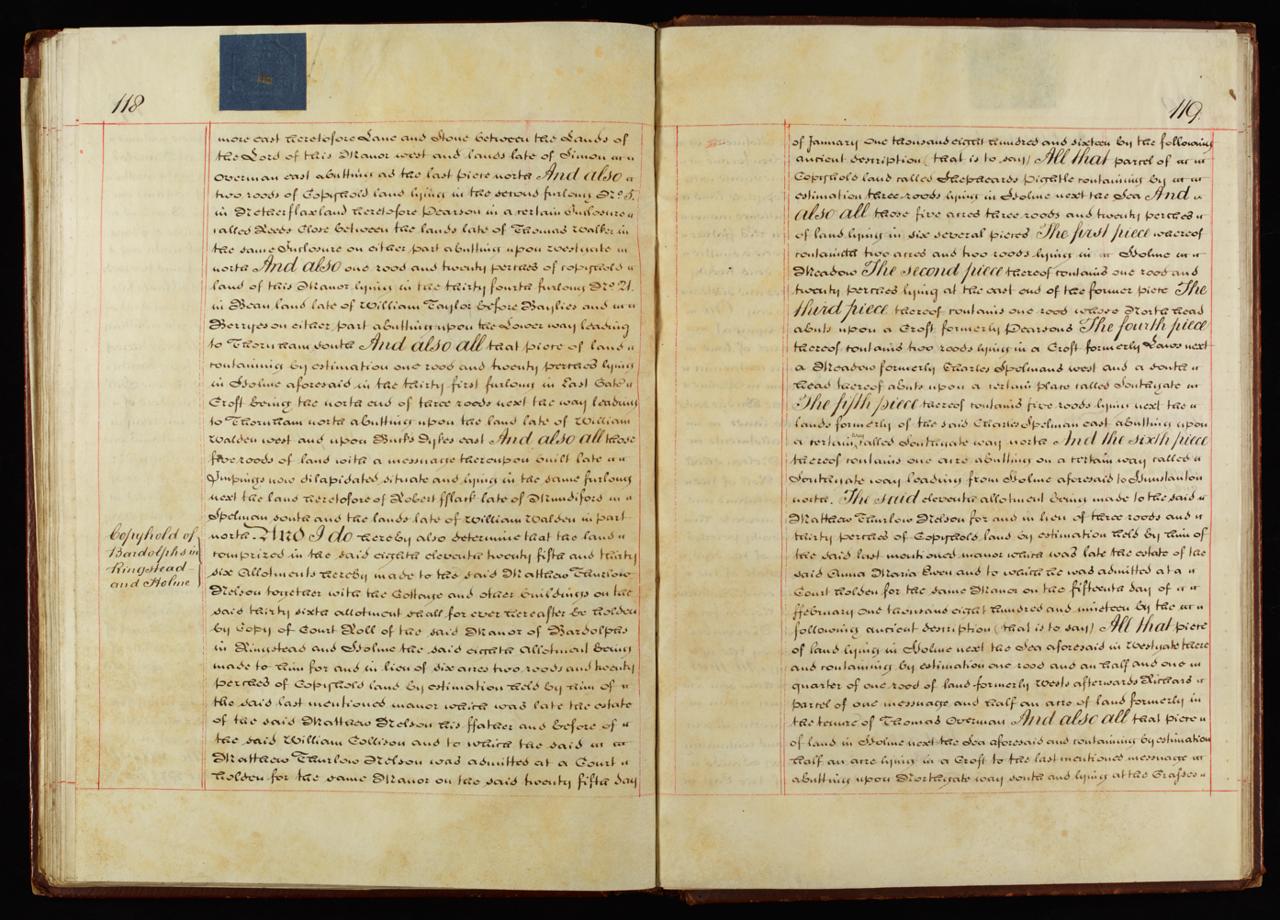 118
more east heretofore Lane and Stone between the Lands of
the Lord of this Manor west and lands late of Simon
Overman east abutting as the last piece north And also
two roods of Copyhold land lying in the second furlong No. 5.
in Netherflaxland heretofore Pearson in a certain Inclosure
called Reeds Close between the lands late of Thomas Walker in
the same Inclosure on either part abutting upon Westgate
north And also one rood and twenty perches of copyhold
land of this Manor lying in the thirty fourth furlong No. 21.
in Bean land late of William Taylor before Baylies and
Berryes on either part abutting upon the Lower way leading
to Thornham south And also all that piece of land
containing by estimation one rood and twenty perches lying
in Holme aforesaid in the thirty first furlong in East Gate
Croft being the north end of three roods next the way leading
to Thornham north abutting upon the land late of William
Walden west and upon Bucks Dykes east And also all those
five roods of land with a messuage thereupon built late
Impings now dilapidated situate and lying in the same furlong
next the land heretofore of Robert fflack late of Mundiford in
Spelman south and the lands late of William Walden in part
north. And I do hereby also determine that the land
comprized in the said eighth eleventh twenty fifth and thirty
six Allotments hereby made to the said Matthew Thurlow
Nelson together with the Cottage and other buildings on the
said thirty sixth allotment shall for ever hereafter be holden
by Copy of Court Roll of the said Manor of Bardolphs
in Ringstead and Holme the said eighth Allotment being
made to him for and in lieu of six acres two roods and twenty
perches of Copyhold land by estimation held by him of
the said last mentioned manor which was late the estate
of the said Matthew Nelson his ffather and before of
the said William Collison and to which the said
Matthew Thurlow Nelson was admitted at a Court
holden for the same Manor on the said twenty fifth day
Copyhold of
Bardolphs in
Ringstead
and Holme
119
of January One thousand eight hundred and sixteen by the following
ancient description (that is to say) All that parcel of
Copyhold land called Shepheards Pightle containing by
estimation three roods lying in Holme next the Sea And
also all those five acres three roods and twenty perches
of land lying in six several pieces The first piece whereof
containeth two acres and two roods lying in Holme
Meadow The second piece thereof contains one rood and
twenty perches lying at the east end of the former piece The
third piece thereof contains one rood whose North head
abuts upon a Croft formerly Pearsons The fourth piece
thereof contains two roods lying in a Croft formerly Laws next
a Meadow formerly Charles Spelmans west and a south
head thereof abuts upon a certain place called Southgate
The fifth piece thereof contains five roods lying next the
lands formerly of the said Charles Spelman east abutting upon
a certain way called Southgate way north And the sixth piece
thereof contains one acre abutting on a certain way called
Southgate way leading from Holme aforesaid to Hunstanton
north. The said eleventh allotment being made to the said
Matthew Thurlow Nelson for and in lieu of three roods and
thirty perches of Copyhold land by estimation held by him of
the said last mentioned manor which was late the estate of the
said Anna Maria Ewen and to which he was admitted at a
Court holden for the same Manor on the fifteenth day of
ffebruary one thousand eight hundred and nineteen by the
following ancient description (that is to say) All that piece
of land lying in Holme next the Sea aforesaid in Westgate there
and containing by estimation one rood and an half and one
quarter of one rood of land formerly Wests afterwards Richars
parcel of one messuage and half an acre of land formerly in
the tenure of Thomas Overman And also all that piece
of land in Holme next the Sea aforesaid and containing by estimation
half an acre lying in a Croft to the last mentioned messuage
abutting upon Northgate way south and lying at the Crasses